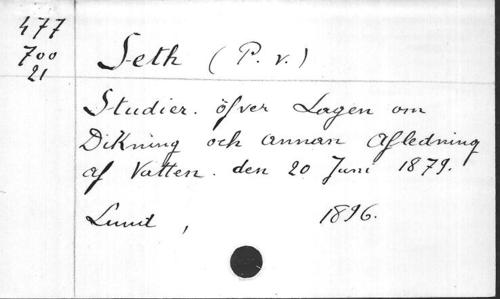 477
700
21
Seth (P. v.)
Studier. öfver Lagen om
Dikning och annan Afledning
af Vatten. den 20 Juni 1879.
Lund, 1896.